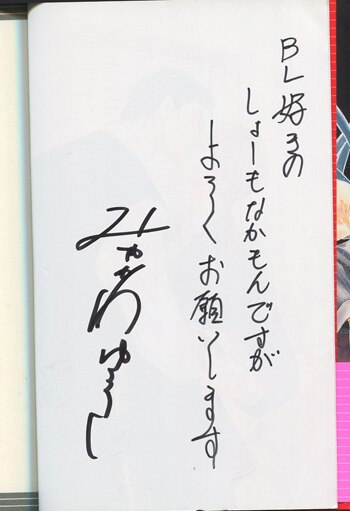 BL好きの
しょーもなかもんですが
よろしくお願いします
みやがわゆうし